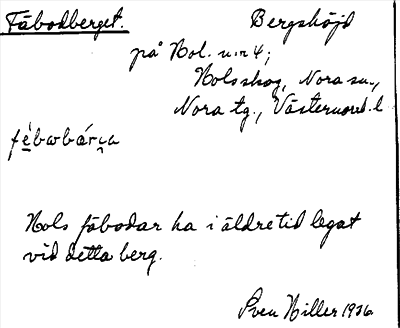 Fäbodberget. Bergshöjd
på Nol. n:r 4;
Nolsskog, Nora sn.,
Nora tg., Västernorrl. l.
Nols fäbodar ha i äldre tid legat
vid detta berg.
Sven Hiller 1936